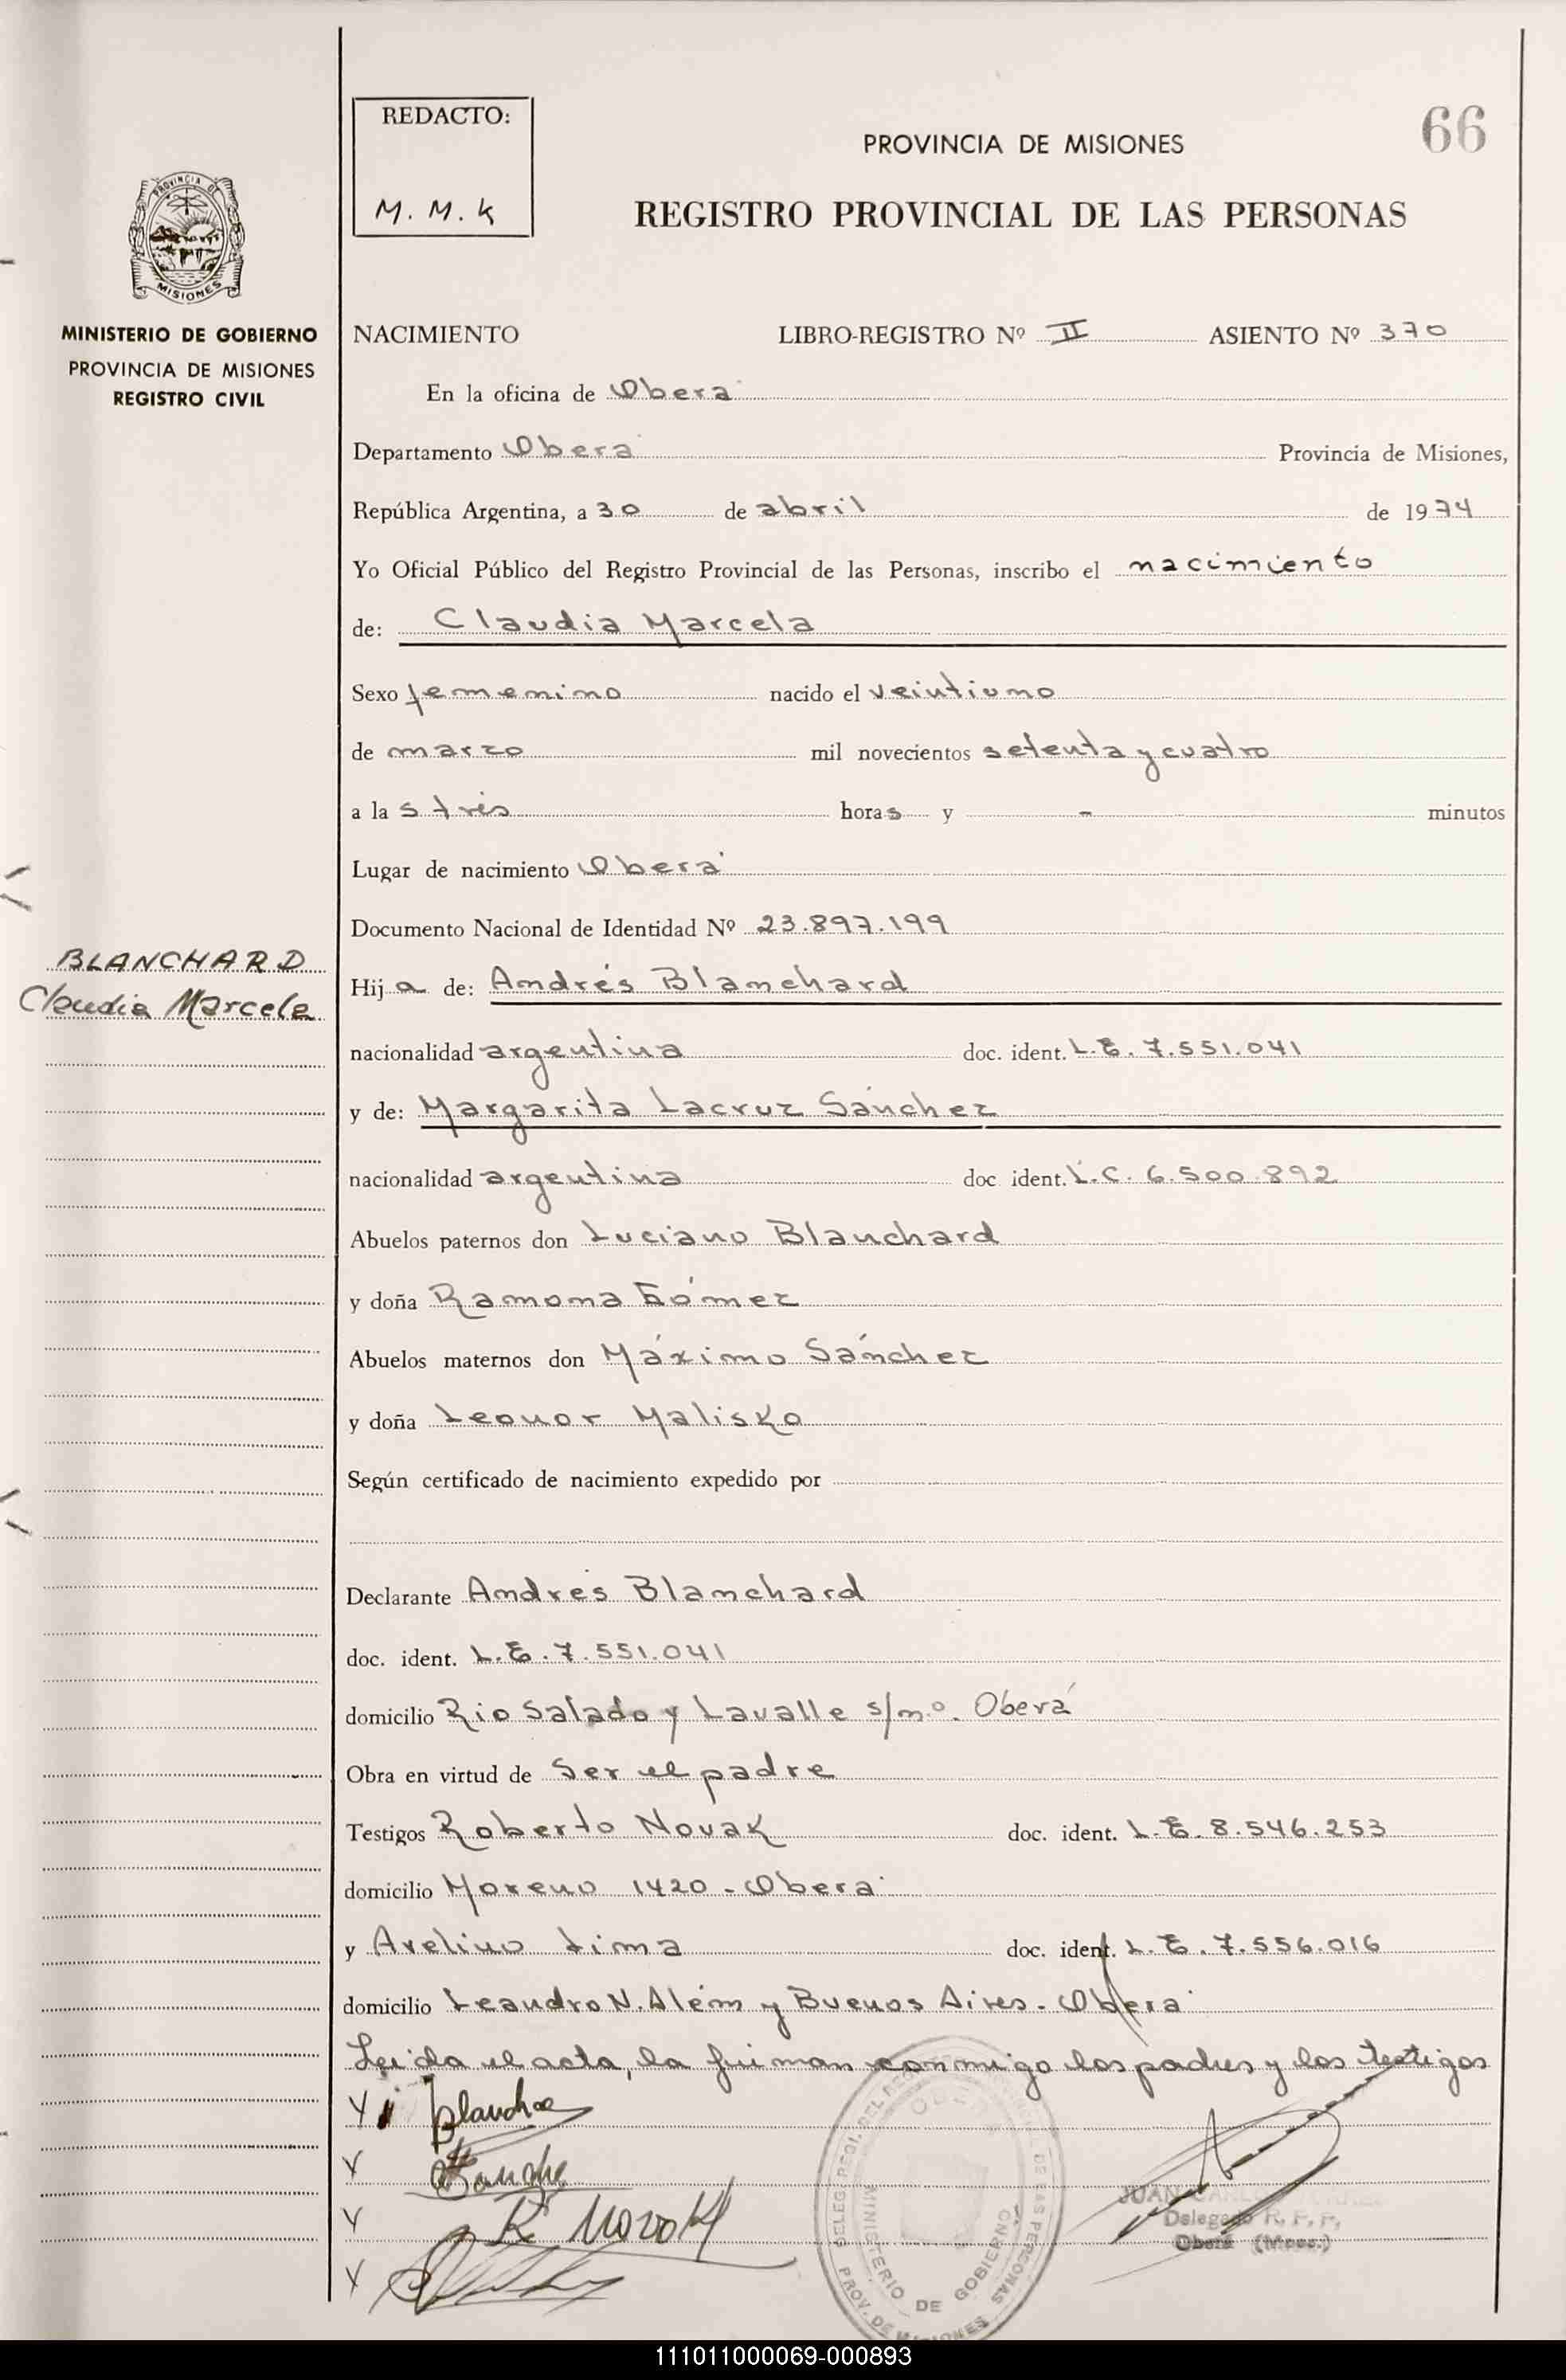 REDACTO:
M. M. K
66
PROVINCIA DE MISIONES
REGISTRO PROVINCIAL DE LAS PERSONAS
PROVINCIA DE
MISIONES
MINISTERIO DE GOBIERNO
PROVINCIA DE MISIONES
REGISTRO CIVIL
NACIMIENTO LIBRO-REGISTRO Nº II ASIENTO Nº 370
En la oficina de Oberá
Departamento Oberá Provincia de Misiones,
República Argentina, a 30 de abril de 1974
Yo Oficial Público del Registro Provincial de las Personas, inscribo el nacimiento
de: Claudia Marcela
Sexo femenino nacido el veintiuno
de marzo mil novecientos setenta y cuatro
a las tres horas y - minutos
Lugar de nacimiento Oberá
Documento Nacional de Identidad Nº 23.897.199
BLANCHARD
Claudia Marcela
Hija de: Andrés Blanchard
nacionalidad argentina doc. ident. L.E. 7.551.041
y de: Margarita Lacruz Sánchez
nacionalidad argentina doc ident. L.C. 6.500.892
Abuelos paternos don Luciano Blanchard
y doña Ramona Gómez
Abuelos maternos don Máximo Sánchez
y doña Leonor Malisko
Según certificado de nacimiento expedido por
Declarante Andrés Blanchard
doc. ident. L.E. 7.551.041
domicilio Rio Salado y Lavalle s/nº. Oberá
Obra en virtud de Ser el padre
Testigos Roberto Novak doc. ident. L.E. 8.546.253
domicilio Moreno 1420 - Oberá
y Avelino Lima doc. ident. L.E. 7.556.016
domicilio Leandro N. Além y Buenos Aires - Oberá
Leída el acta, la firman conmigo los padres y los testigos
Y Blanchar
Y
Y R. Novak
Y
MINISTERIO DE GOBIERNO
PROV. DE MISIONES
DE LAS PERSONAS
JUAN
Delegado R. P. P.
Oberá (Mnes.)
111011000069-000893